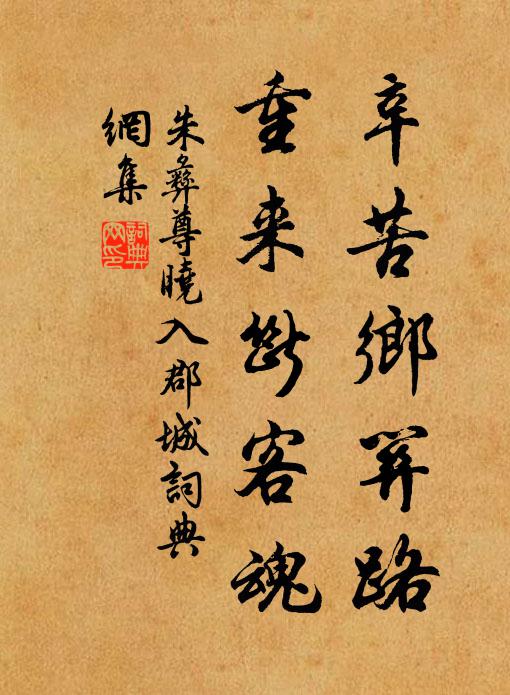 辛苦鄉關路
重来斷客魂
朱彝尊曉入郡城詞典
網集
詞典網印